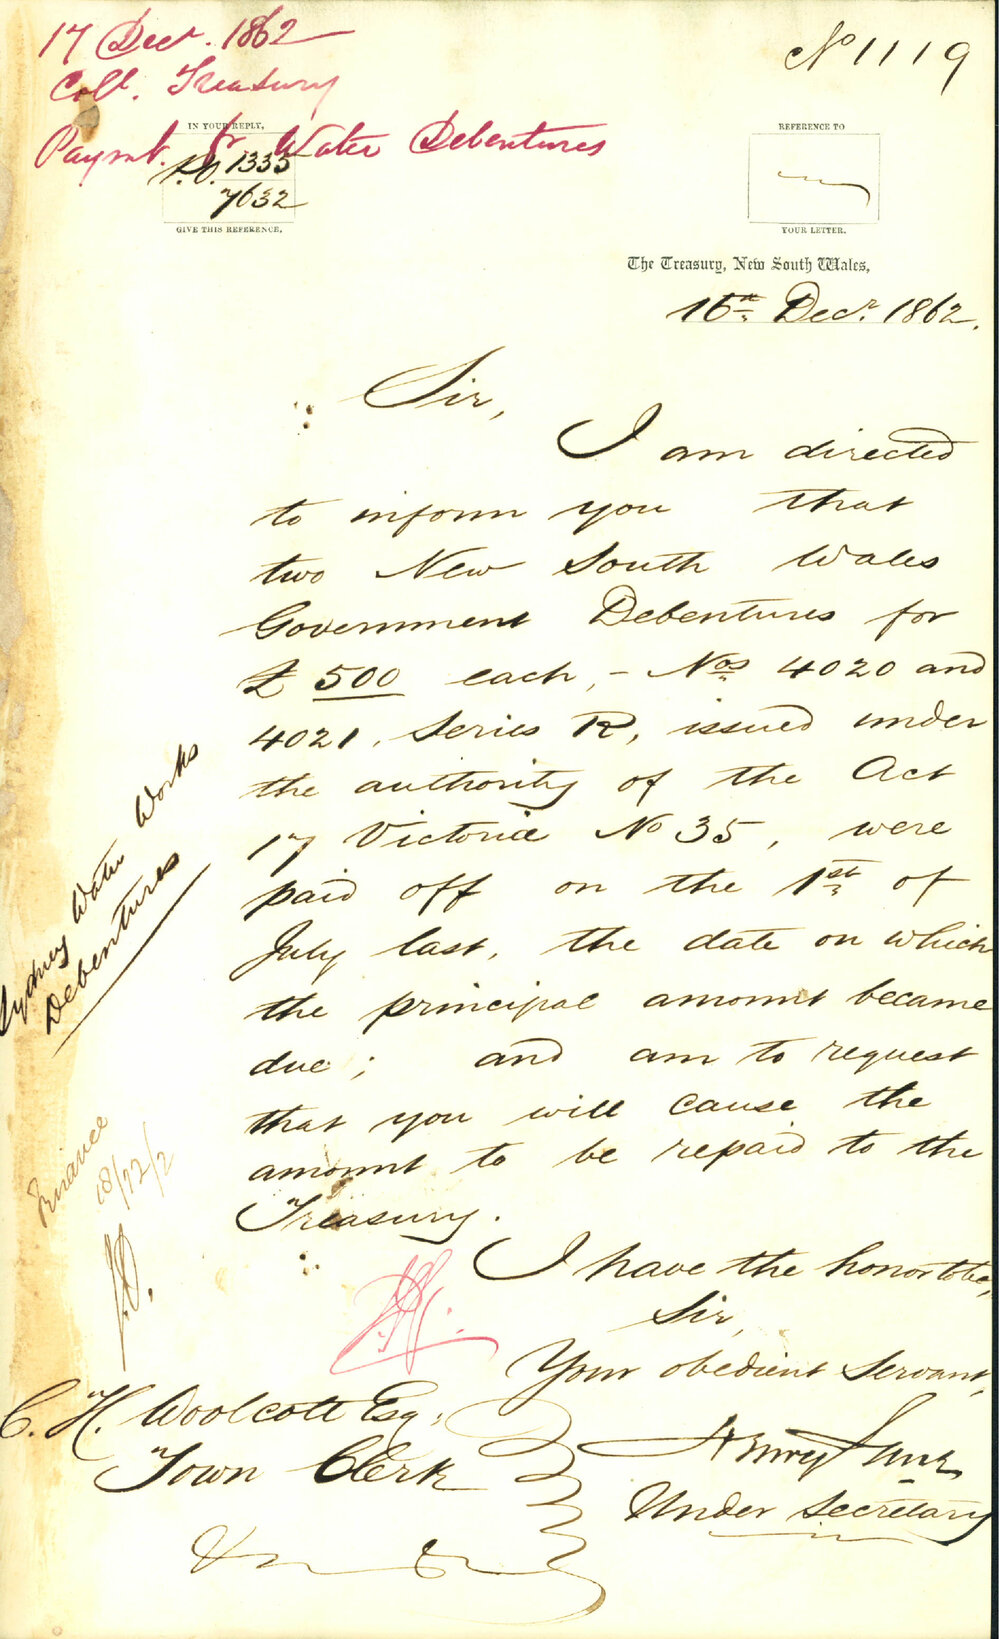 17 Decr. 1862
Coll. Treasury
Paymt. fr Water Debentures
No 1119
IN YOUR REPLY,
1335
7632
GIVE THIS REFERENCE.
REFERENCE TO
YOUR LETTER.
The Treasury, New South Wales,
16th Decr. 1862.
Sir,
I am directed
to inform you that
two New South Wales
Government Debentures for
£ 500 each, - Nos 4020 and
4021, Series R, issued under
the authority of the Act
17 Victoria No 35, were
paid off on the 1st of
July last, the date on which
the principal amount became
due; and am to request
that you will cause the
amount to be repaid to the
Treasury.
I have the honor to be,
Sir,
Your obedient Servant,
Henry Lane
Under Secretary
C. H. Woolcott Esq.
Town Clerk
Sydney Water Works
Debentures
Finance
18/12/2